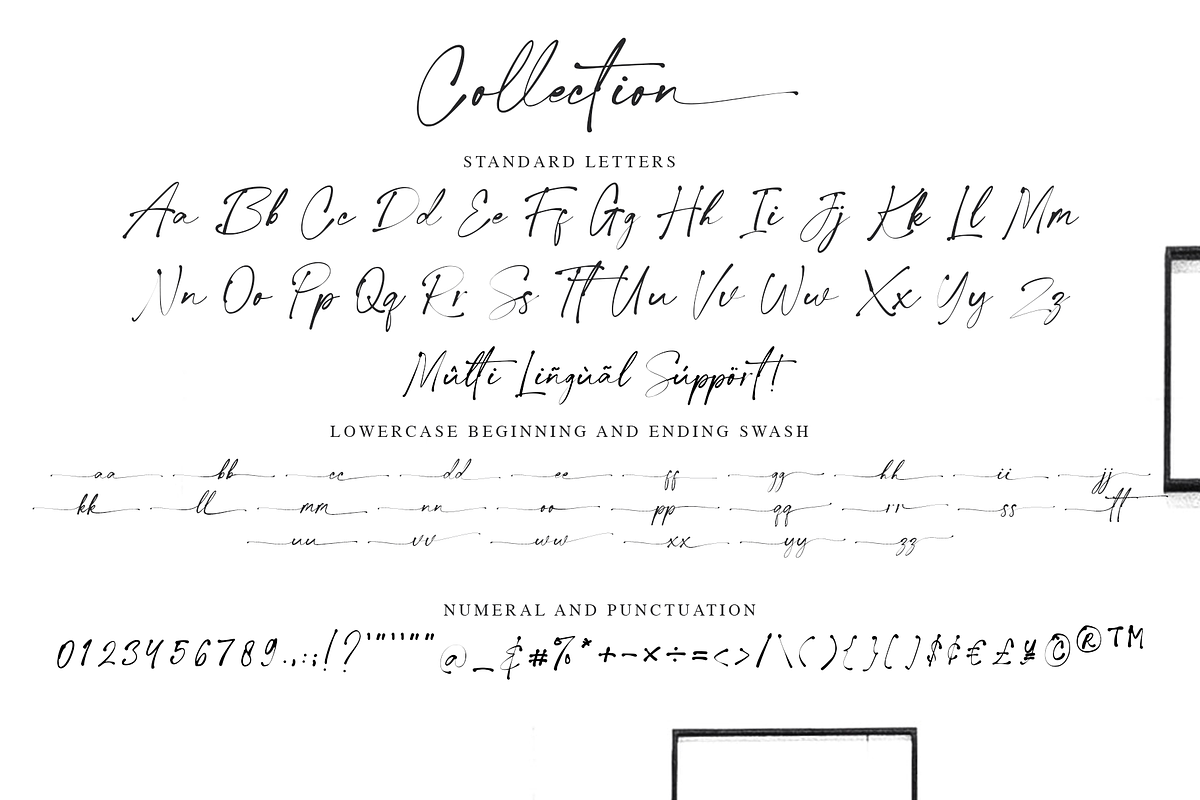 Collection
STANDARD LETTERS
Aa Bb Cc Dd Ee Ff Gg Hh Ii Jj Kk Ll Mm
Nn Oo Pp Qq Rr Ss Tt Uu Vv Ww Xx Yy Zz
Mûlti Liñgùãl Súppört!
LOWERCASE BEGINNING AND ENDING SWASH
aa bb cc dd ee ff gg hh ii jj
kk ll mm nn oo pp qq rr ss tt
uu vv ww xx yy zz
NUMERAL AND PUNCTUATION
0123456789.,:;!?'"‘’“”@_&#%*+-×÷=<>/\(){}[]$¢€£¥©®™